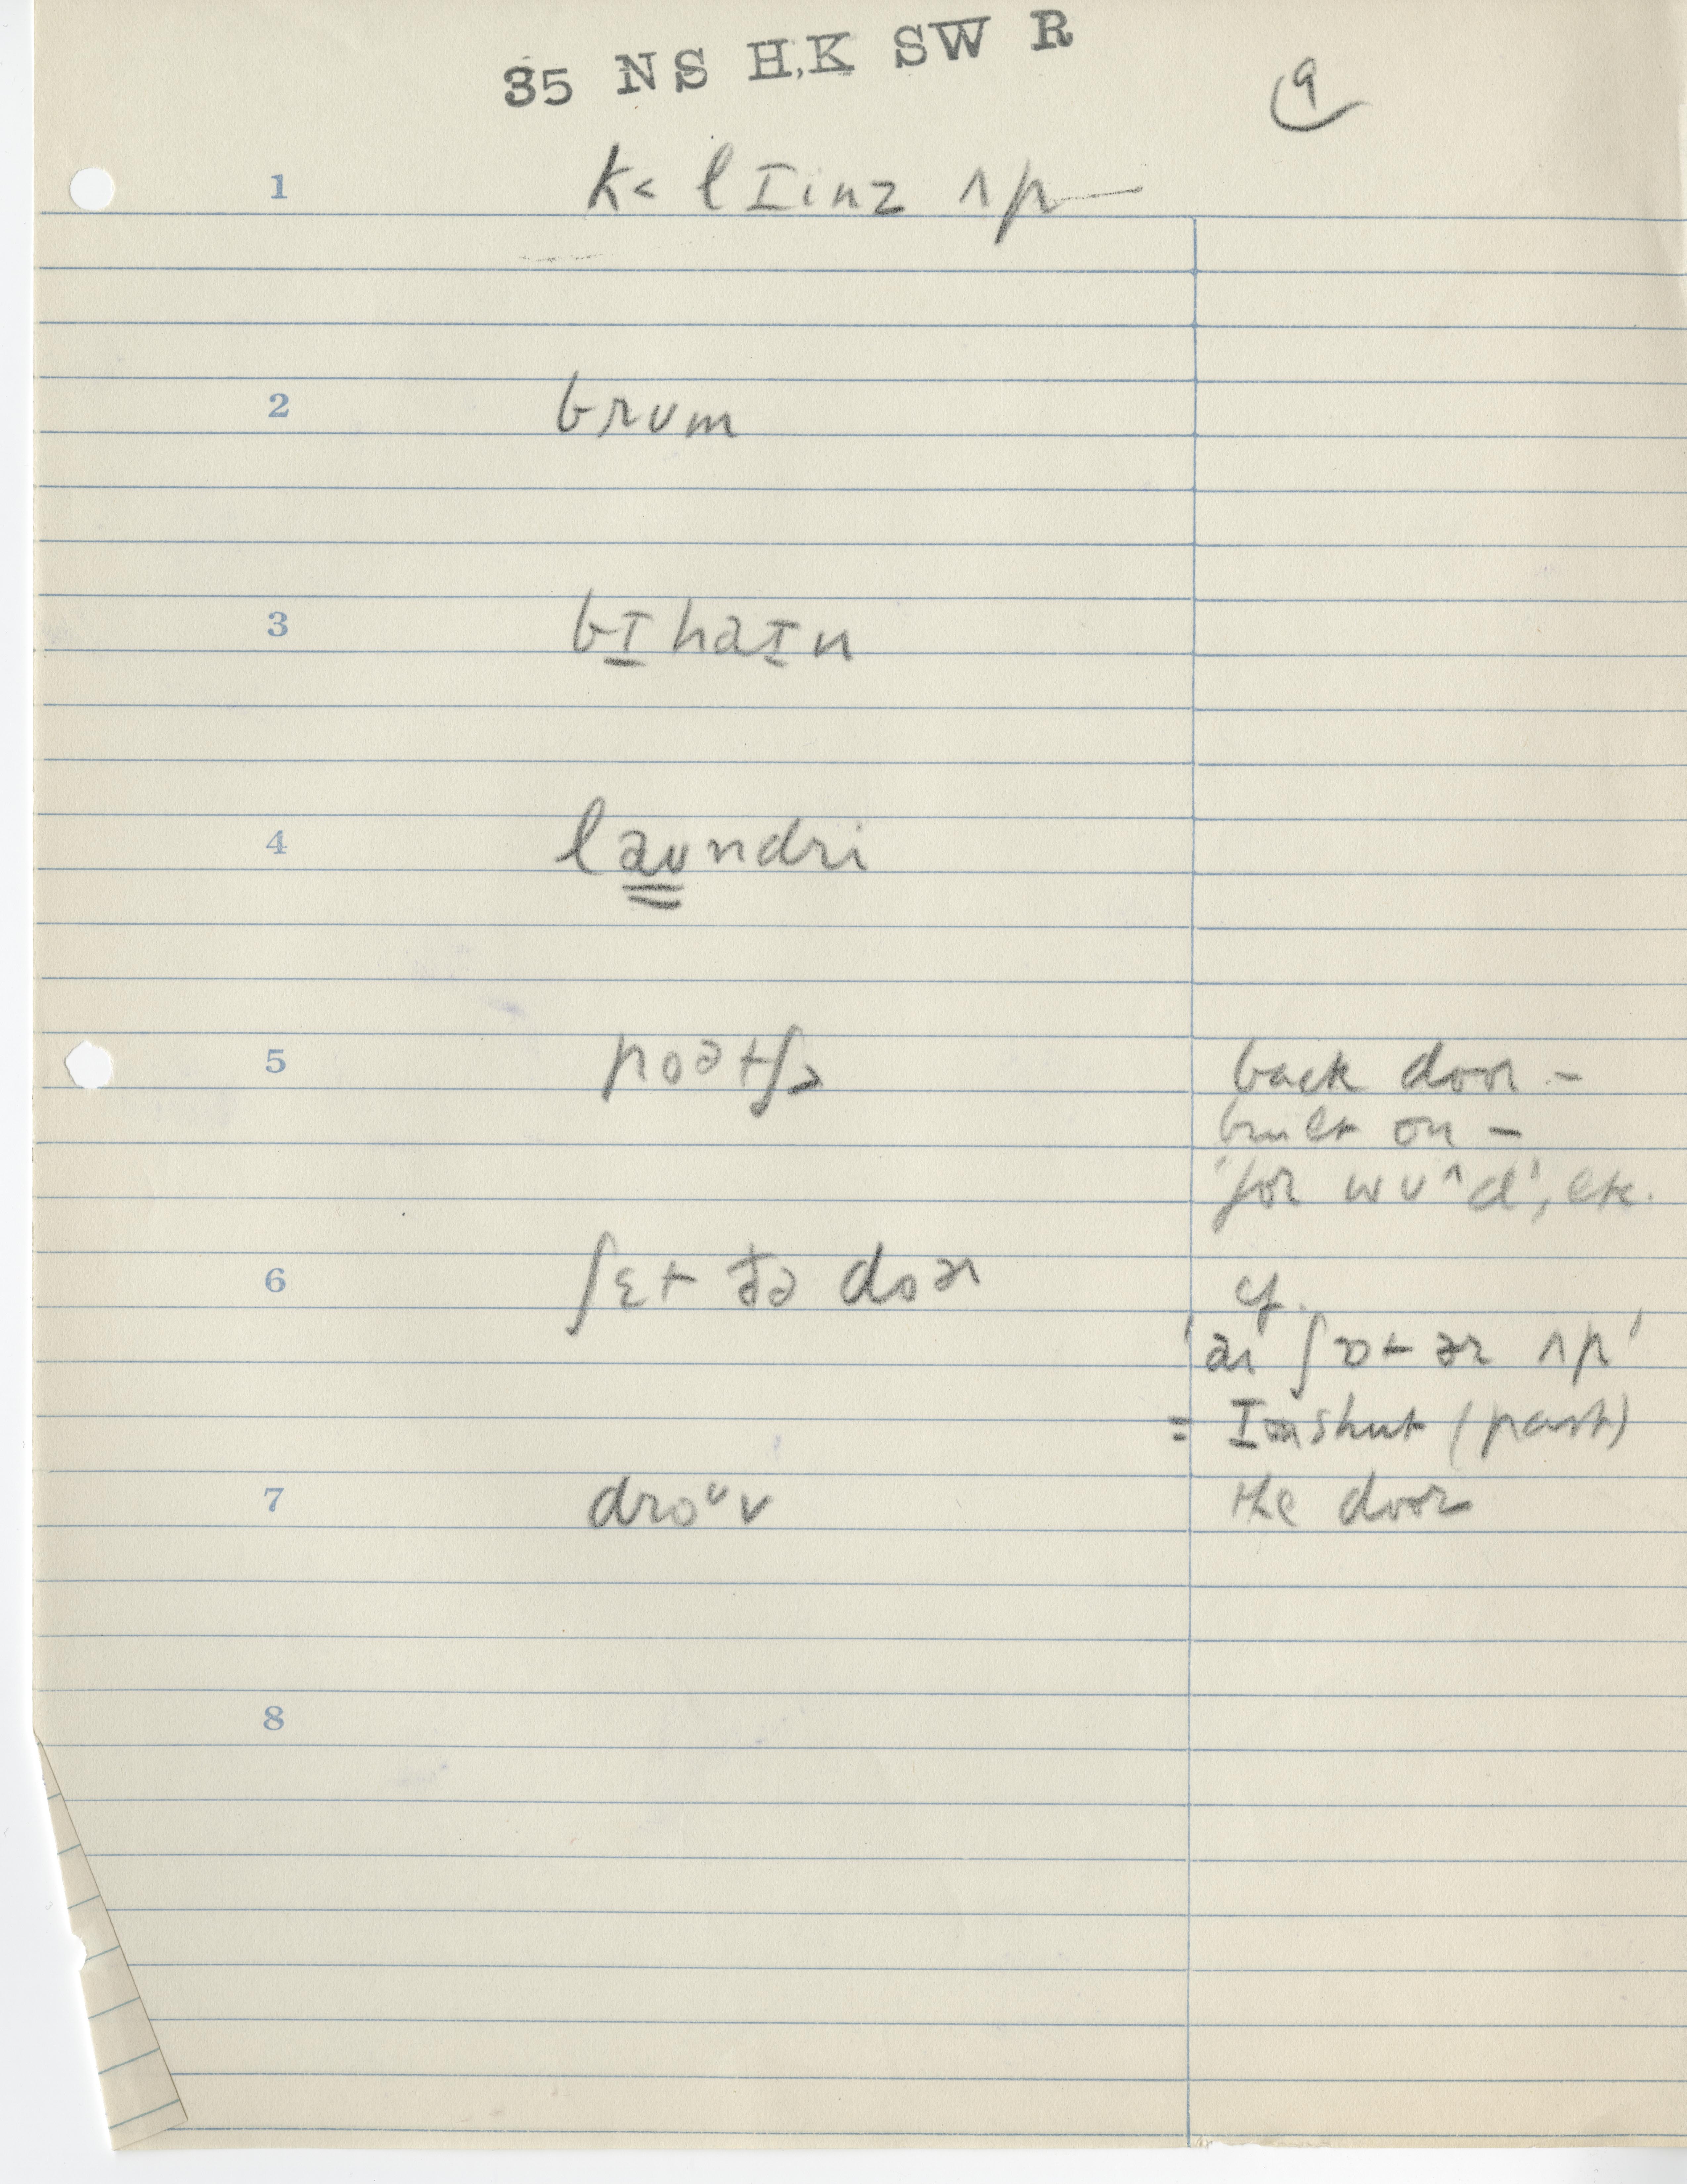 35 NS H,K SW R
9
1 k˂ lɪinz ʌp
2 brʊm
3 bɪhaɪn
4 laʊndri
5 poətʃ˃
back door –
built on –
'for wʊ^d', etc.
6 ʃɛt ðə doər
cf.
'aɪ ʃɒt ər ʌp'
= I shut (past)
7 droᵘv
the door
8